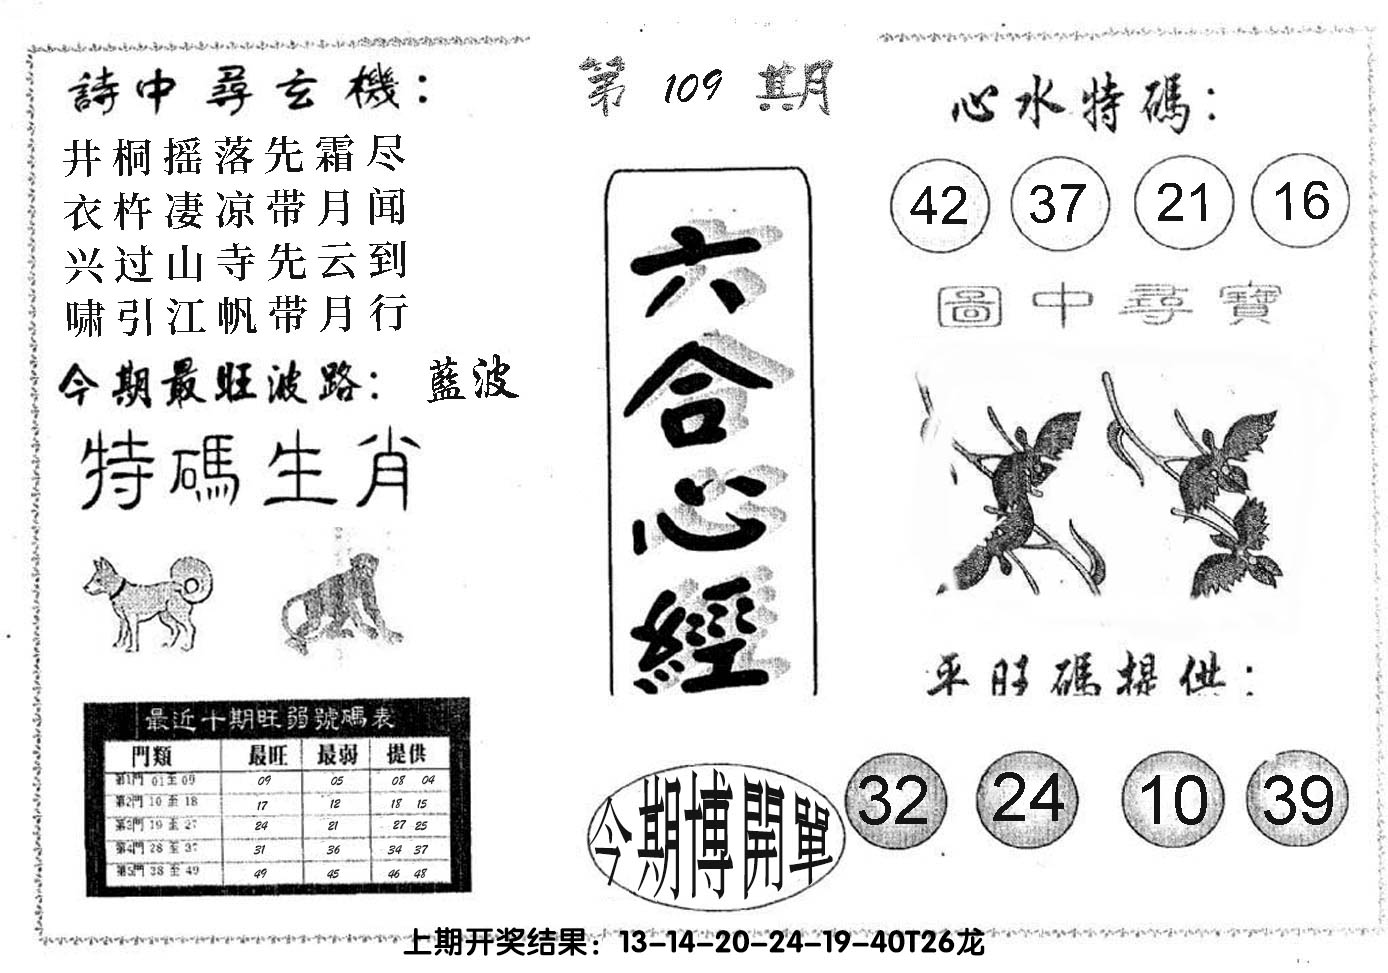 詩中尋玄機：
井桐摇落先霜尽
衣杵凄凉带月闻
兴过山寺先云到
啸引江帆带月行
今期最旺波路：藍波
特碼生肖
最近十期旺弱號碼表
門類 最旺 最弱 提供
第1門 01至09 09 05 08 04
第2門 10至18 17 12 18 15
第3門 19至27 24 21 27 25
第4門 28至37 31 36 34 37
第5門 38至49 49 45 46 48
第109期
六合心經
今期博開單
心水特碼：
42 37 21 16
圖中尋寶
平旺碼提供：
32 24 10 39
上期开奖结果：13–14–20–24–19–40T26龙